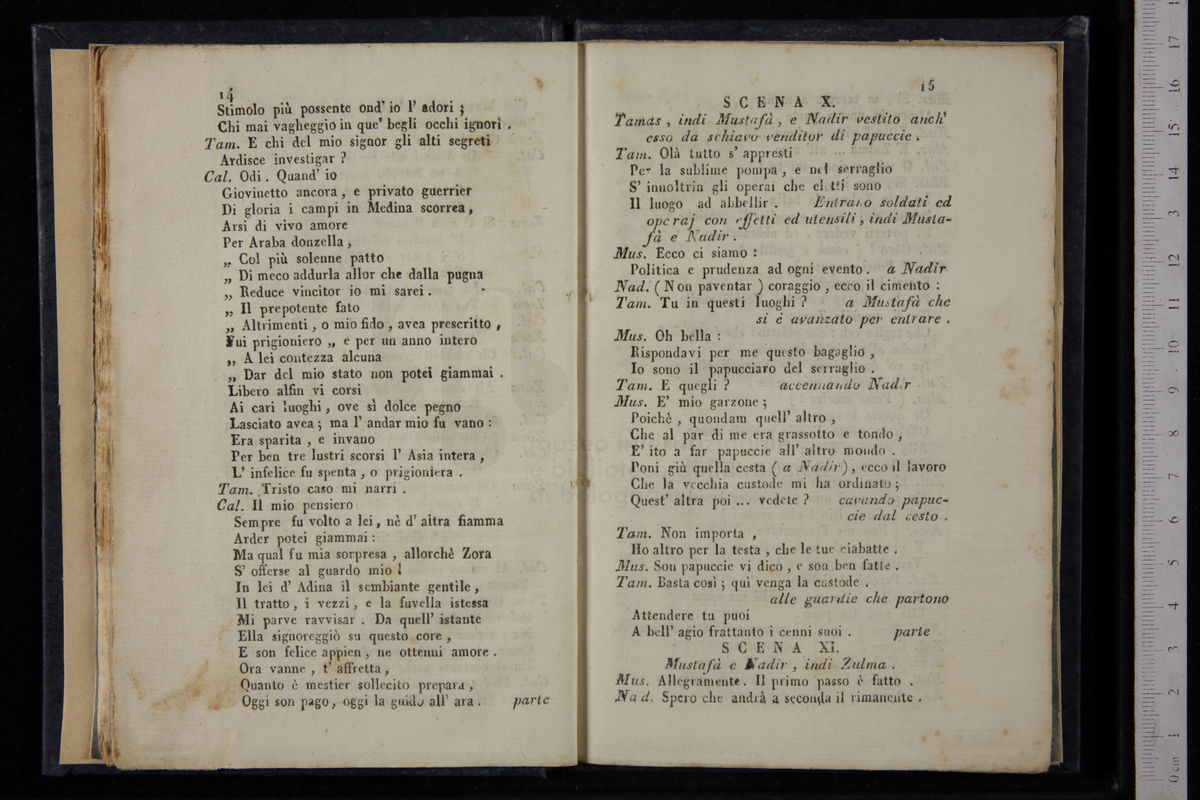 14
Stimolo più possente ond' io l' adori ;
Chi mai vagheggio in que' begli occhi ignori .
Tam. E chi del mio signor gli alti segreti
Ardisce investigar ?
Cal. Odi . Quand' io
Giovinetto ancora , e privato guerrier
Di gloria i campi in Medina scorrea ,
Arsi di vivo amore
Per Araba donzella ,
„ Col più solenne patto
„ Di meco addurla allor che dalla pugna
„ Reduce vincitor io mi sarei .
„ Il prepotente fato
„ Altrimenti , o mio fido , avea prescritto ,
Fui prigioniero „ e per un anno intero
„ A lei contezza alcuna
„ Dar del mio stato non potei giammai .
Libero alfin vi corsi
Ai cari luoghi , ove sì dolce pegno
Lasciato avea ; ma l' andar mio fu vano :
Era sparita , e invano
Per ben tre lustri scorsi l' Asia intera ,
L' infelice fu spenta , o prigioniera .
Tam. Tristo caso mi narri .
Cal. Il mio pensiero
Sempre fu volto a lei , nè d' altra fiamma
Arder potei giammai :
Ma qual fu mia sorpresa , allorchè Zora
S' offerse al guardo mio !
In lei d' Adina il sembiante gentile ,
Il tratto , i vezzi , e la fuvella istessa
Mi parve ravvisar . Da quell' istante
Ella signoreggiò su questo core ,
E son felice appien , ne ottenni amore .
Ora vanne , t' affretta ,
Quanto è mestier sollecito prepara ,
Oggi son pago , oggi la guido all' ara . parte
15
SCENA X.
Tamas , indi Mustafà , e Nadir vestito anch'
esso da schiavo venditor di papuccie .
Tam. Olà tutto s' appresti
Per la sublime pompa , e nel serraglio
S' innoltrin gli operai che eletti sono
Il luogo ad abbellir . Entrano soldati ed
operaj con effetti ed utensili , indi Musta-
fà e Nadir .
Mus. Ecco ci siamo :
Politica e prudenza ad ogni evento . a Nadir
Nad. ( Non paventar ) coraggio , ecco il cimento :
Tam. Tu in questi luoghi ? a Mustafà che
si è avanzato per entrare .
Mus. Oh bella :
Rispondavi per me questo bagaglio ,
Io sono il papucciaro del serraglio .
Tam. E quegli ? accennando Nadir
Mus. E' mio garzone ;
Poichè , quondam quell' altro ,
Che al par di me era grassotto e tondo ,
E' ito a far papuccie all' altro mondo .
Poni giù quella cesta ( a Nadir ) , ecco il lavoro
Che la vecchia custode mi ha ordinato ;
Quest' altra poi ... vedete ? cavando papuc-
cie dal cesto .
Tam. Non importa ,
Ho altro per la testa , che le tue ciabatte .
Mus. Son papuccie vi dico , e son ben fatte .
Tam. Basta così ; quì venga la custode .
alle guardie che partono
Attendere tu puoi
A bell' agio frattanto i cenni suoi . parte
SCENA XI.
Mustafà e Nadir , indi Zulma .
Mus. Allegramente . Il primo passo è fatto .
Nad. Spero che andrà a seconda il rimanente .